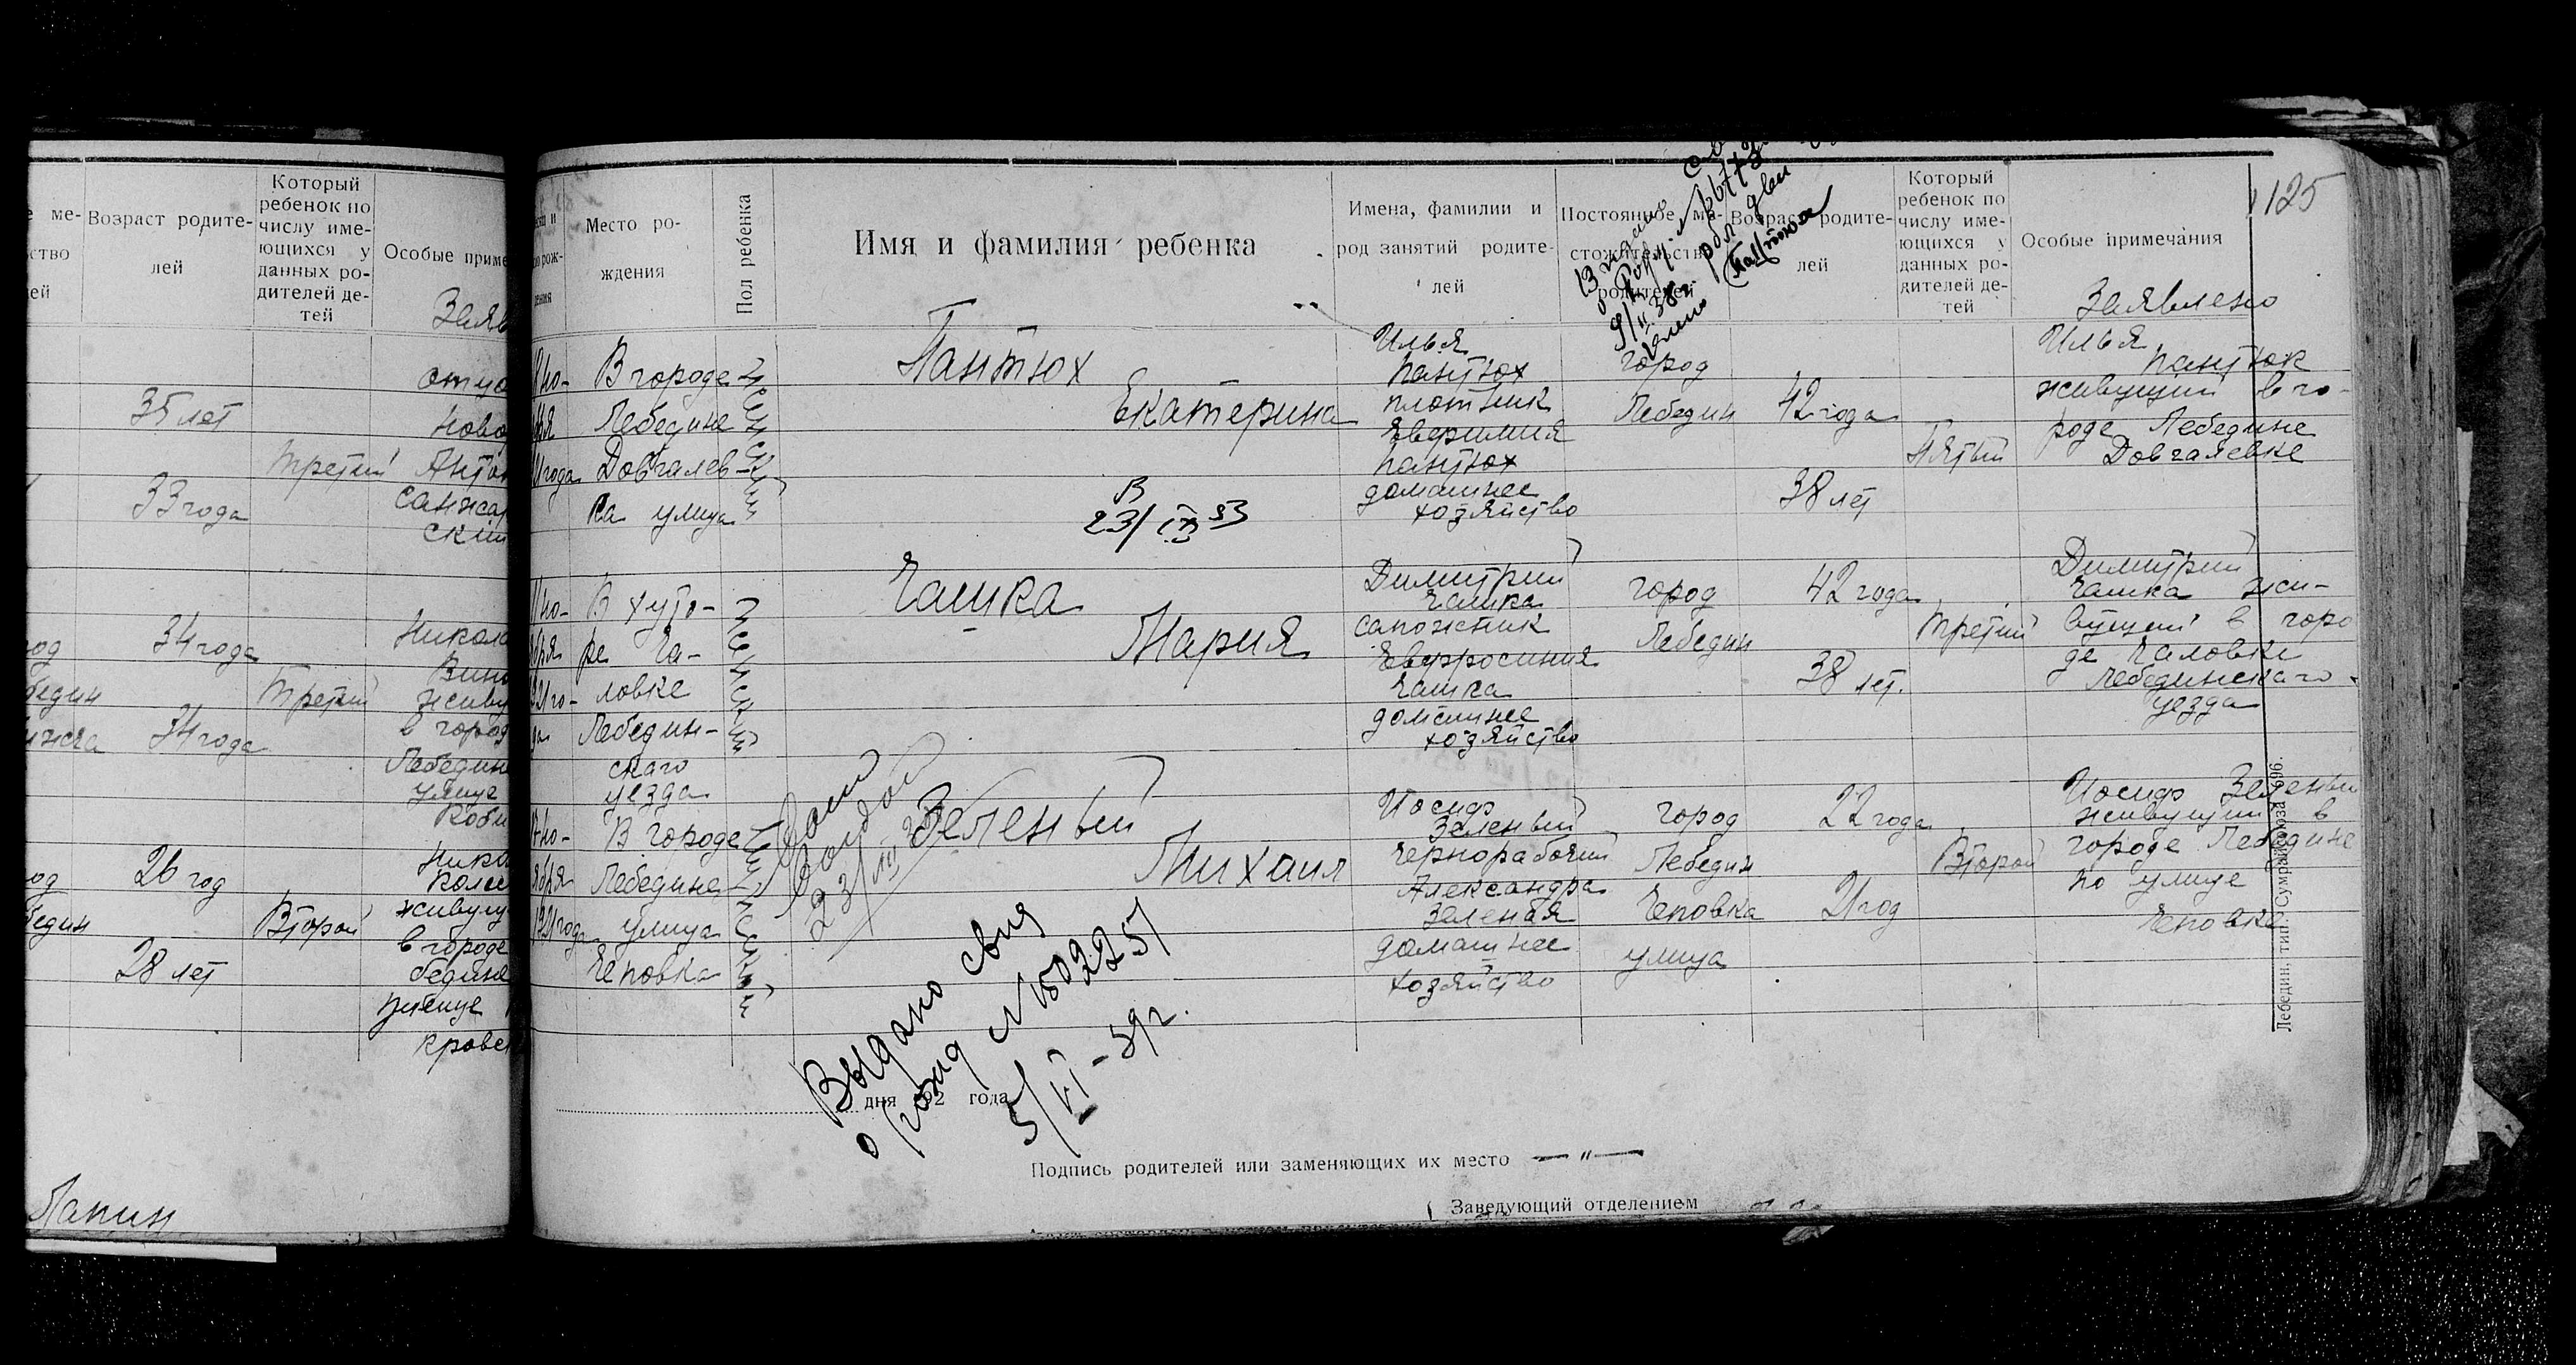 Возраст родите-
лей
Который
ребенок по
числу име-
ющихся у
данных ро-
дителей де-
тей
Особые приме
Заяв
35 лет
33 года
третий
34 года
34 года
третий
Никола
в город
Лебедин
улица
26 год
28 лет
Второй
живущ
в городе
Лапин
125
Место ро-
ждения
Пол ребенка
Имя и фамилия ребенка
Имена, фамилии и
род занятий родите-
лей
Постоянное ме-
стожительство
родителей
Возраст родите-
лей
Который
ребенок по
числу име-
ющихся у
данных ро-
дителей де-
тей
Особые примечания
Заявлено
В городе
Лебедине
Довгалев-
ка улица
женский
Пантюх
Екатерина
В
23/IX 33
Илья
Пантюх
плотник
Евфимия
Пантюх
домашнее
хозяйство
город
Лебедин
42 года
38 лет
Пятый
Илья
Пантюх
живущий в го-
роде Лебедине
Довгалевке
В хуто-
ре Ча-
ловке
Лебедин-
скаго
уезда
женский
Чашка
Мария
Димитрий
Чашка
сапожник
Евфросиния
Чашка
домашнее
хозяйство
город
Лебедин
42 года
38 лет.
третий
Димитрий
Чашка жи-
вущий в горо
де Чаловке
Лебединскаго
уезда
В городе
Лебедине
улица
Чеповка
мужской
Зеленый
Михаил
Иосиф
Зеленый
чернорабочий
Александра
Зеленая
домашнее
хозяйство
город
Лебедин
Чеповка
улица
22 года
21 год
Второй
Иосиф Зеленый
живущий в
городе Лебедине
по улице
Чеповке
Выдано свид
о рожд № 503225
5/VI-39г.
дня 192 года
Подпись родителей или заменяющих их место — " —
Заведующий отделением
Лебедин, тип. Сумрайсоюза 1696.